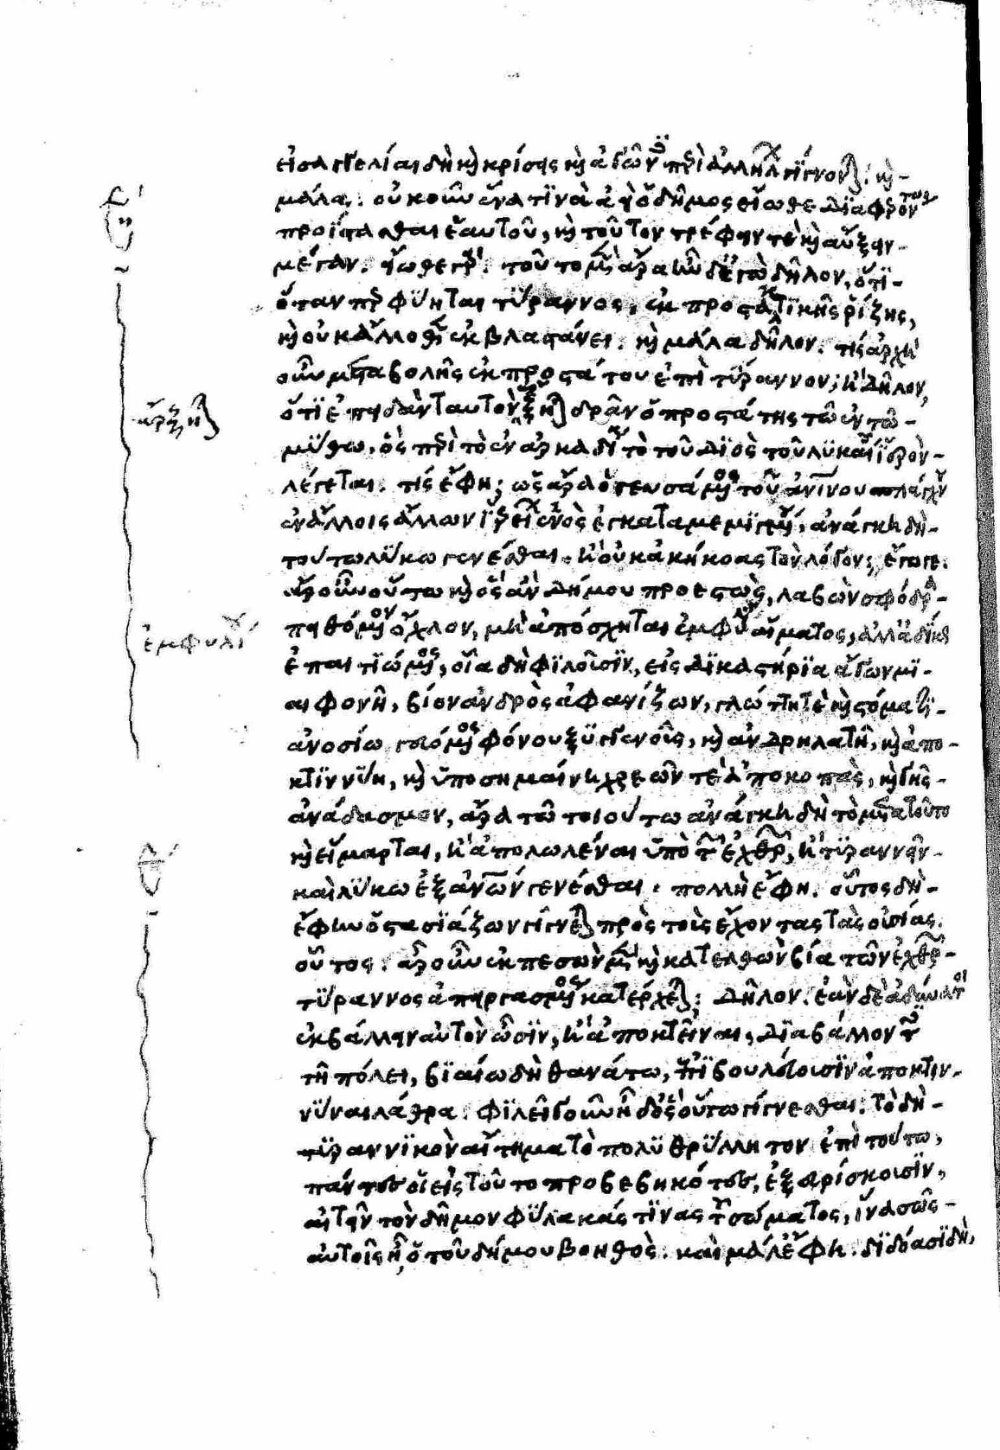 εἰσαγγελίαι δὴ καὶ κρίσεις καὶ ἀγῶνες περὶ ἀλλήλων γίγνονται: καὶ
μάλα: οὐκοῦν ἕνα τινὰ ἀεὶ ὁ δῆμος εἴωθε διαφερόντως
προΐστασθαι ἑαυτοῦ, καὶ τοῦτον τρέφειν τε καὶ αὔξειν
μέγαν. εἴωθε γάρ. τοῦτο μὲν ἄρα ἦν δ' ἐγὼ δῆλον, ὅτι
ὅταν περ φύηται τύραννος, ἐκ προστατικῆς ῥίζης,
καὶ οὐκ ἄλλοθεν ἐκβλαστάνει: καὶ μάλα δῆλον. τίς ἀρχὴ
οὖν μεταβολῆς ἐκ προστάτου ἐπὶ τύραννον; ἢ δῆλον,
ὅτι ἐπειδὰν ταυτὸν ἄρξηται δρᾶν ὁ προστάτης τῶ ἐν τῶ
ἄρξηται
μύθω, ὃς περὶ τὸ ἐν ἀρκαδία τὸ τοῦ διὸς τοῦ λυκαίου ἱερὸν
λέγεται: τίς ἔφη; ὡς ἄρα ὁ γευσάμενος τοῦ ἀνθρωπίνου σπλάγχνου
ἐν ἄλλοις ἄλλων ἱερείων ἑνὸς ἐγκαταμεμιγμένου, ἀνάγκη δὴ
τούτω λύκω γενέσθαι. ἢ οὐκ ἀκήκοας τὸν λόγον; ἔγωγε.
ἆρ' οὖν οὕτω καὶ ὃς ἂν δήμου προεστὼς, λαβὼν σφόδρα
πειθόμενον ὄχλον, μὴ ἀπόσχηται ἐμφυλίου αἵματος, ἀλλ' ἀδίκως
ἐμφυλί
ἐπαιτιώμενος, οἷα δὴ φιλοῦσιν, εἰς δικαστήρια ἄγων μι
αιφονῆ, βίον ἀνδρὸς ἀφανίζων, γλώττη τε καὶ στόματι
ἀνοσίω γευόμενος φόνου ξυγγενοῦς, καὶ ἀνδρηλατῆ, καὶ ἀπο
κτιννύη, καὶ ὑποσημαίνη χρεῶν τε ἀποκοπὰς, καὶ γῆς
ἀνάδασμον, ἆρα τῶ τοιούτω ἀνάγκη δὴ τὸ μετὰ τοῦτο
καὶ εἵμαρται, ἢ ἀπολωλέναι ὑπὸ τῶν ἐχθρῶν, ἢ τυραννεῖν
καὶ λύκω ἐξ ἀνθρώπου γενέσθαι. πολλὴ ἔφη. οὗτος δὴ
ἔφην ὁ στασιάζων γίγνεται πρὸς τοὺς ἔχοντας τὰς οὐσίας.
οὗτος: ἆρ' οὖν ἐκπεσὼν μὲν καὶ κατελθὼν βία τῶν ἐχθρῶν
τύραννος ἀπειργασμένος κατέρχεται: δῆλον. ἐὰν δὲ ἀδύνατοι
ἐκβάλλειν αὐτὸν ὦσιν, ἢ ἀποκτεῖναι, διαβάλλοντες
τῆ πόλει, βιαίω δὴ θανάτω, ἐπιβουλεύουσιν ἀποκτιν
νύναι λάθρα: φιλεῖ γοῦν ἦ δ' ὃς οὕτω γίγνεσθαι: τὸ δὴ
τυραννικὸν αἴτημα τὸ πολυθρύλλητον ἐπὶ τούτω,
πάντες οἱ εἰς τοῦτο προβεβηκότες, ἐξευρίσκουσιν,
αἰτεῖν τὸν δῆμον φύλακάς τινας τοῦ σώματος, ἵνα σῶς
αὐτοῖς ἦ, ὁ τοῦ δήμου βοηθὸς: καὶ μάλ' ἔφη. διδόασι δὴ,